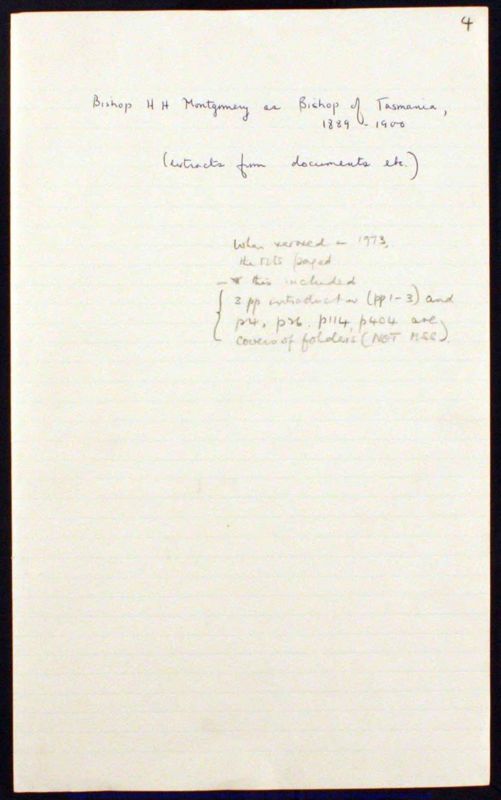 4
Bishop H H Montgomery as Bishop of Tasmania,
1889 - 1900
(extracts from documents etc.)
When xeroxed in 1973,
the MS paged
this included
3 pp introduction (pp 1-3) and
p4, p26, p114, p404 are
covers of folders (NOT MSS).